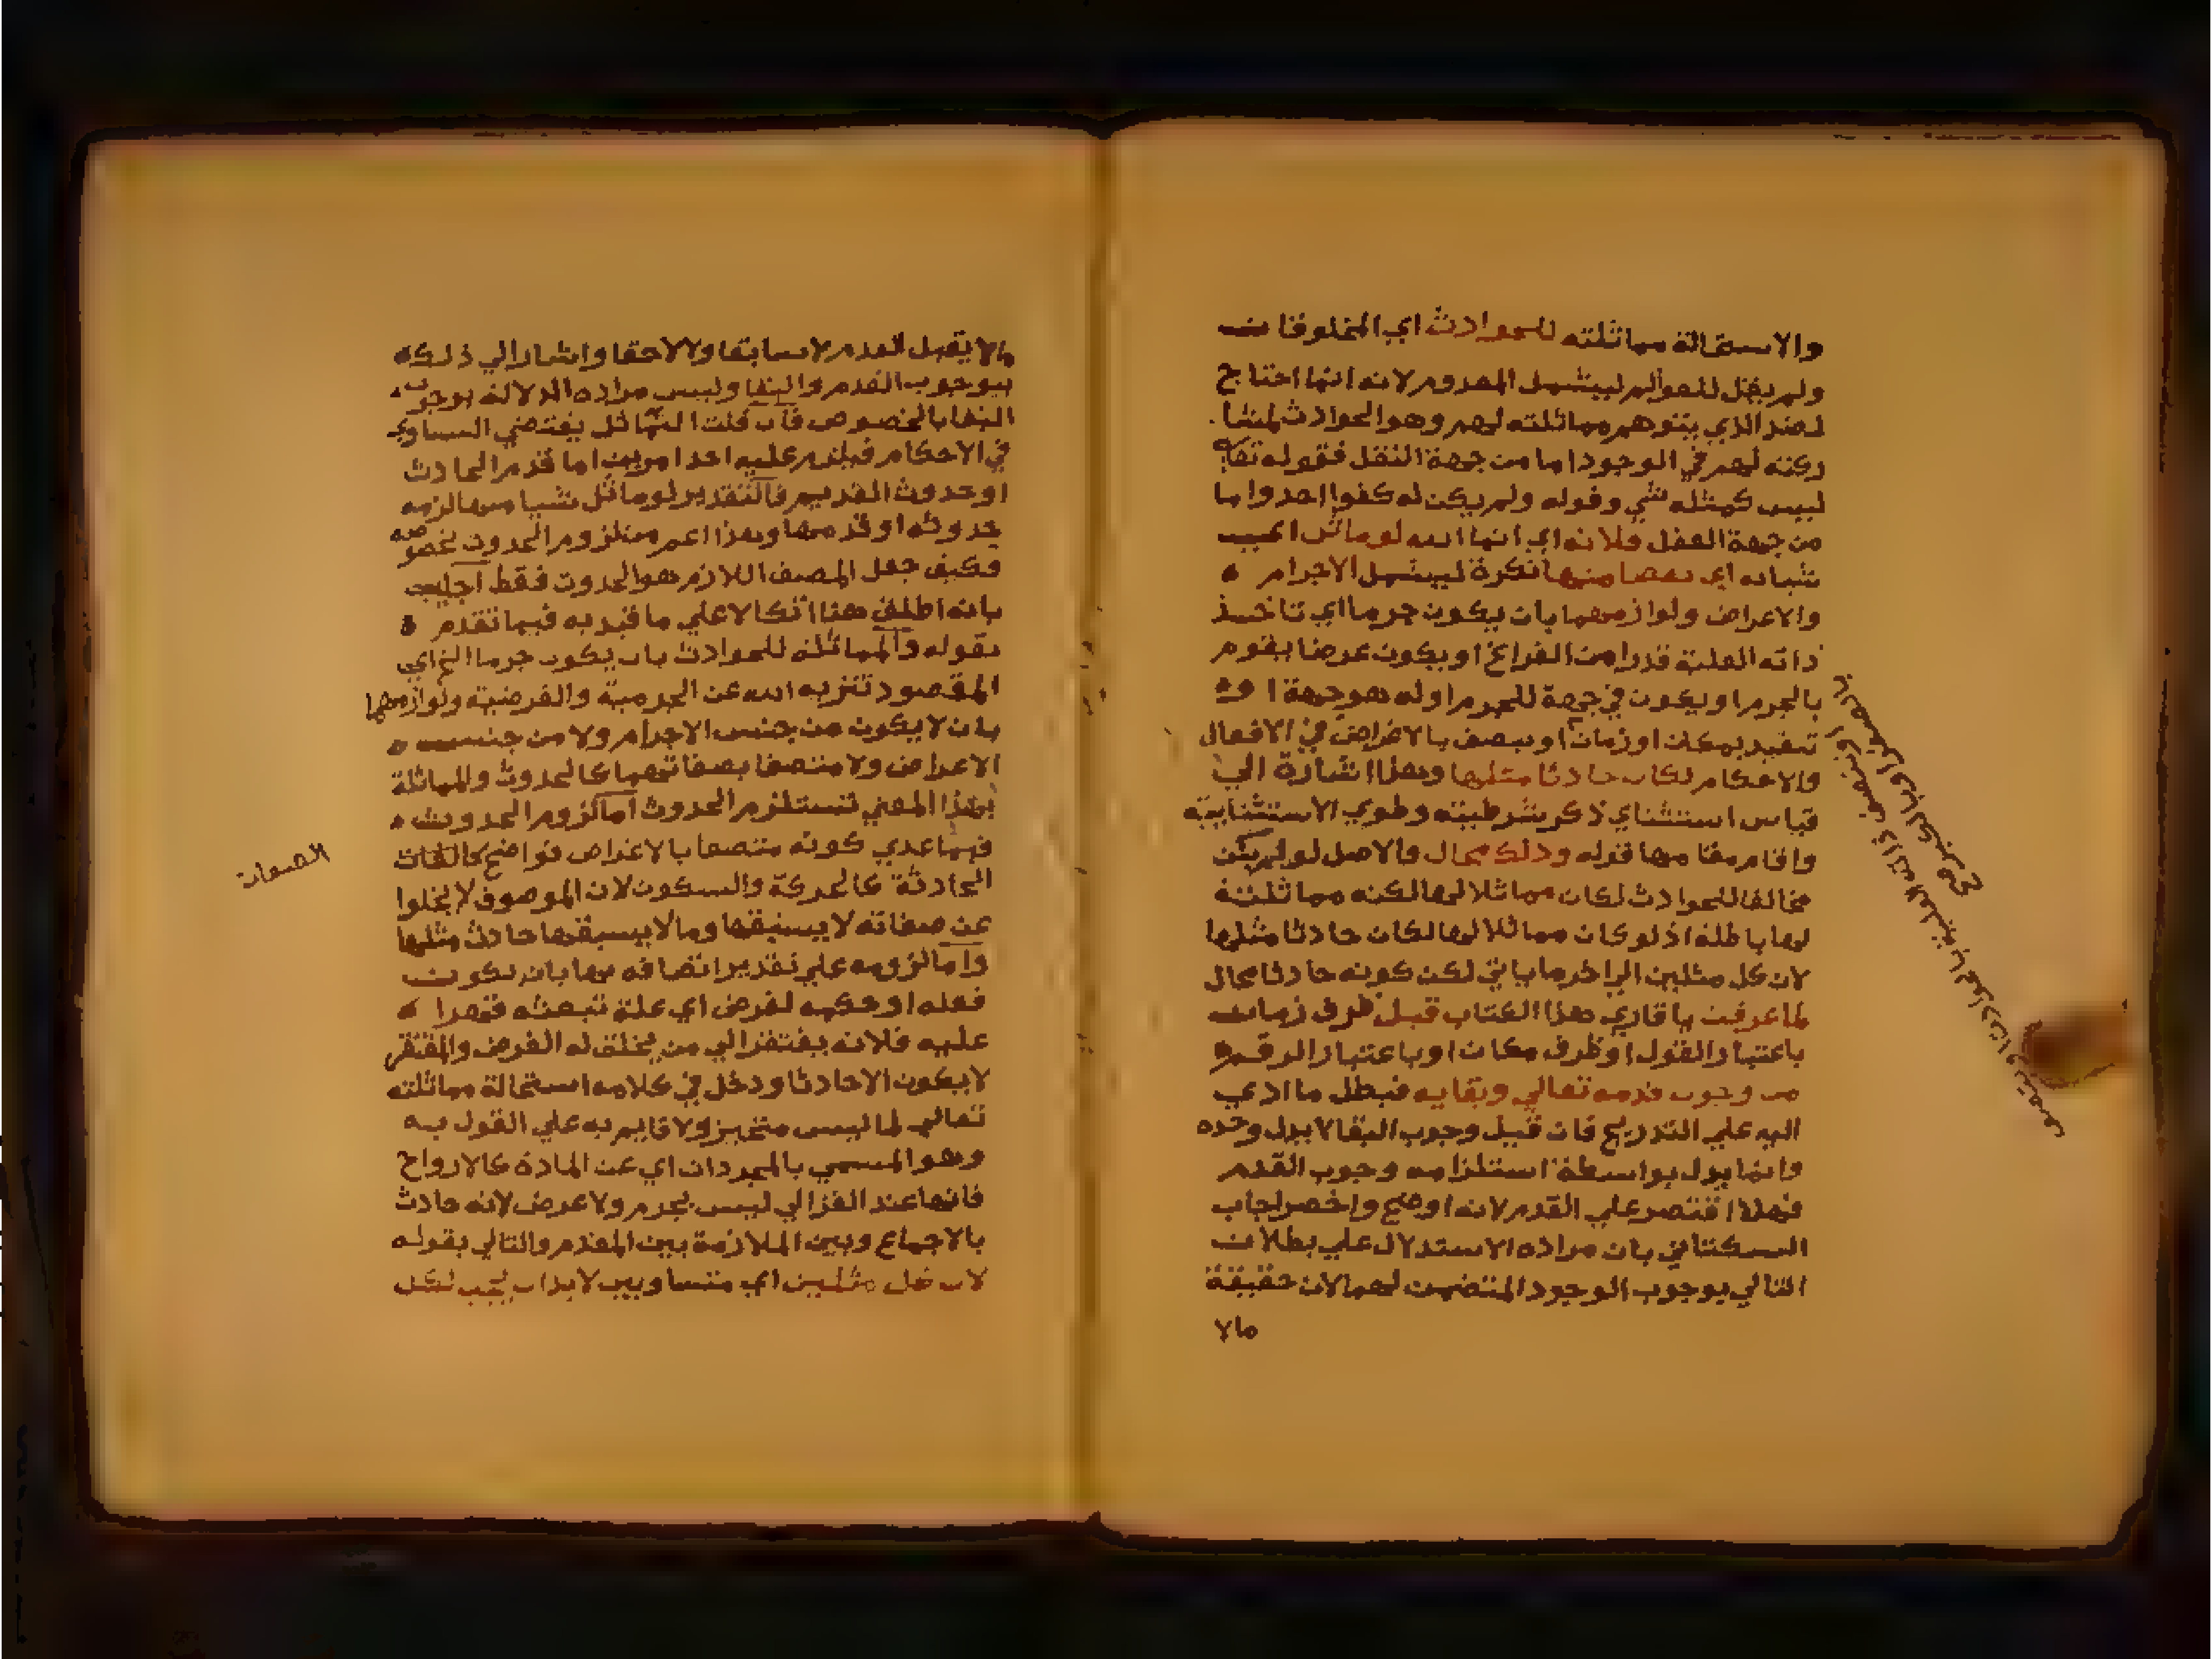 والاستحالة مماثلته للحوادث اي المخلوقات
ولم يقل للعوالم ليشمل المعدوم لانه انما احتاج
لضد الذي يتوهم مماثلته لهم وهو الحوادث لمشا
ركته لهم في الوجود اما من جهة النقل فقوله تعالي
ليس كمثله شي وقوله ولم يكن له كفوا احد واما
من جهة العقل فلانه اي انما الله لو ماثل
شيا اي بعضا منها نكرة ليشمل الاجرام
والاعراض ولوازمهما بان يكون جرما اي تاخذ
ذاته العلية قدرا من الفراغ او يكون عرضا يقوم
بالجرم او يكون في جهة للجرم او له هو جهة او
تقيد بمكان او زمان او يتصف بالاغراض في الافعال
والاحكام لكان حادثا مثلها وهذا اشارة الي
قياس استثناي ذكر شرطيته وطوي الاستثنايية
واقام مقامها قوله وذلك محال والاصل لو لم يكن
مخالفا للحوادث لكان مماثلا لها لكنه مماثلته
لها باطلة اذ لو كان مماثلا لها لكان حادثا مثلها
لان كل مثلين الي اخر ما ياتي لكن كونه حادثا محال
لما عرفت يا قاري هذا الكتاب قبل ظرف زمان
باعتبار القول او ظرف مكان او باعتبار الرقم
من وجوب قدمه تعالي وبقايه فبطل ما ادي
اليه علي التدريج فان قيل وجوب البقا لا يدل وحده
وانما يدل بواسطة استلزامه وجوب القدم
فهلا اقتصر علي القدم لانه اوضح واخصر اجاب
السكتاني بان مراده الاستدلال علي بطلان
التالي بوجوب الوجود المتضمن لهما لان حقيقة
مالا
مالا يقبل العدم لا سابقا ولا لاحقا واشار الي ذلك
بوجوب القدم والبقا وليس مراده الدلالة بوجوب
البقا بالخصوص فان قلت التماثل يقتضي التساوي
في الاحكام فيلزم عليه احد امرين اما قدم الحادث
او حدوث القديم فالتقدير لو ماثل شيا منها لزم
حدوثه او قدمها وهذا اعم من لزوم الحدوث بخصوصه
وكيف جعل المصنف اللازم هو الحدوث فقط اجيب
بانه اطلق هنا اتكالا علي ما قيد به فيما تقدم
بقوله والمماثلة للحوادث بان يكون جرما الخ اي
المقصود تنزيه الله عن الجرمية والعرضية ولوازمهما
بان لا يكون من جنس الاجرام ولا من جنس
الاعراض ولا متصفا بصفاتهما كالحدوث والمماثلة
بهذا المعني تستلزم الحدوث اما لزوم الحدوث
فيما عدي كونه متصفا بالاغراض فواضح
الصفات
الحادثة كالحركة والسكون لان الموصوف لا يخلوا
عن صفاته لا يسبقها وما لا يسبقها حادث مثلها
واما لزومه علي تقدير اتصافه بها بان يكون
فعله او حكمه لغرض اي علة تبعثه قهرا
عليه فلانه يفتقر الي من يخلق له الغرض والمفتقر
لا يكون الا حادثا ودخل في كلامه استحالة مماثلته
تعالي لما ليس متحيز ولا قايم به علي القول به
وهو المسمي بالمجردات اي عن المادة كالارواح
فانها عند الغزالي ليس بجرم ولا عرض لانه حادث
بالاجماع وبين الملازمة بين المقدم والتالي بقوله
لان كل مثلين اي متساويين لابد ان يجب لكل